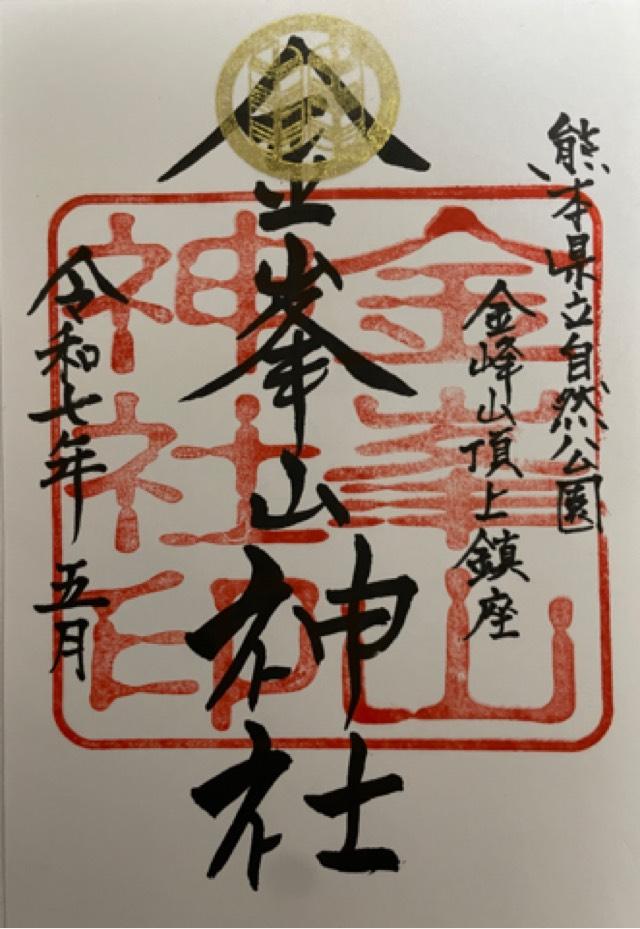 熊本県立自然公園
金峰山頂上鎮座
金峯山神社
令和七年 五月
金峯山
神社印